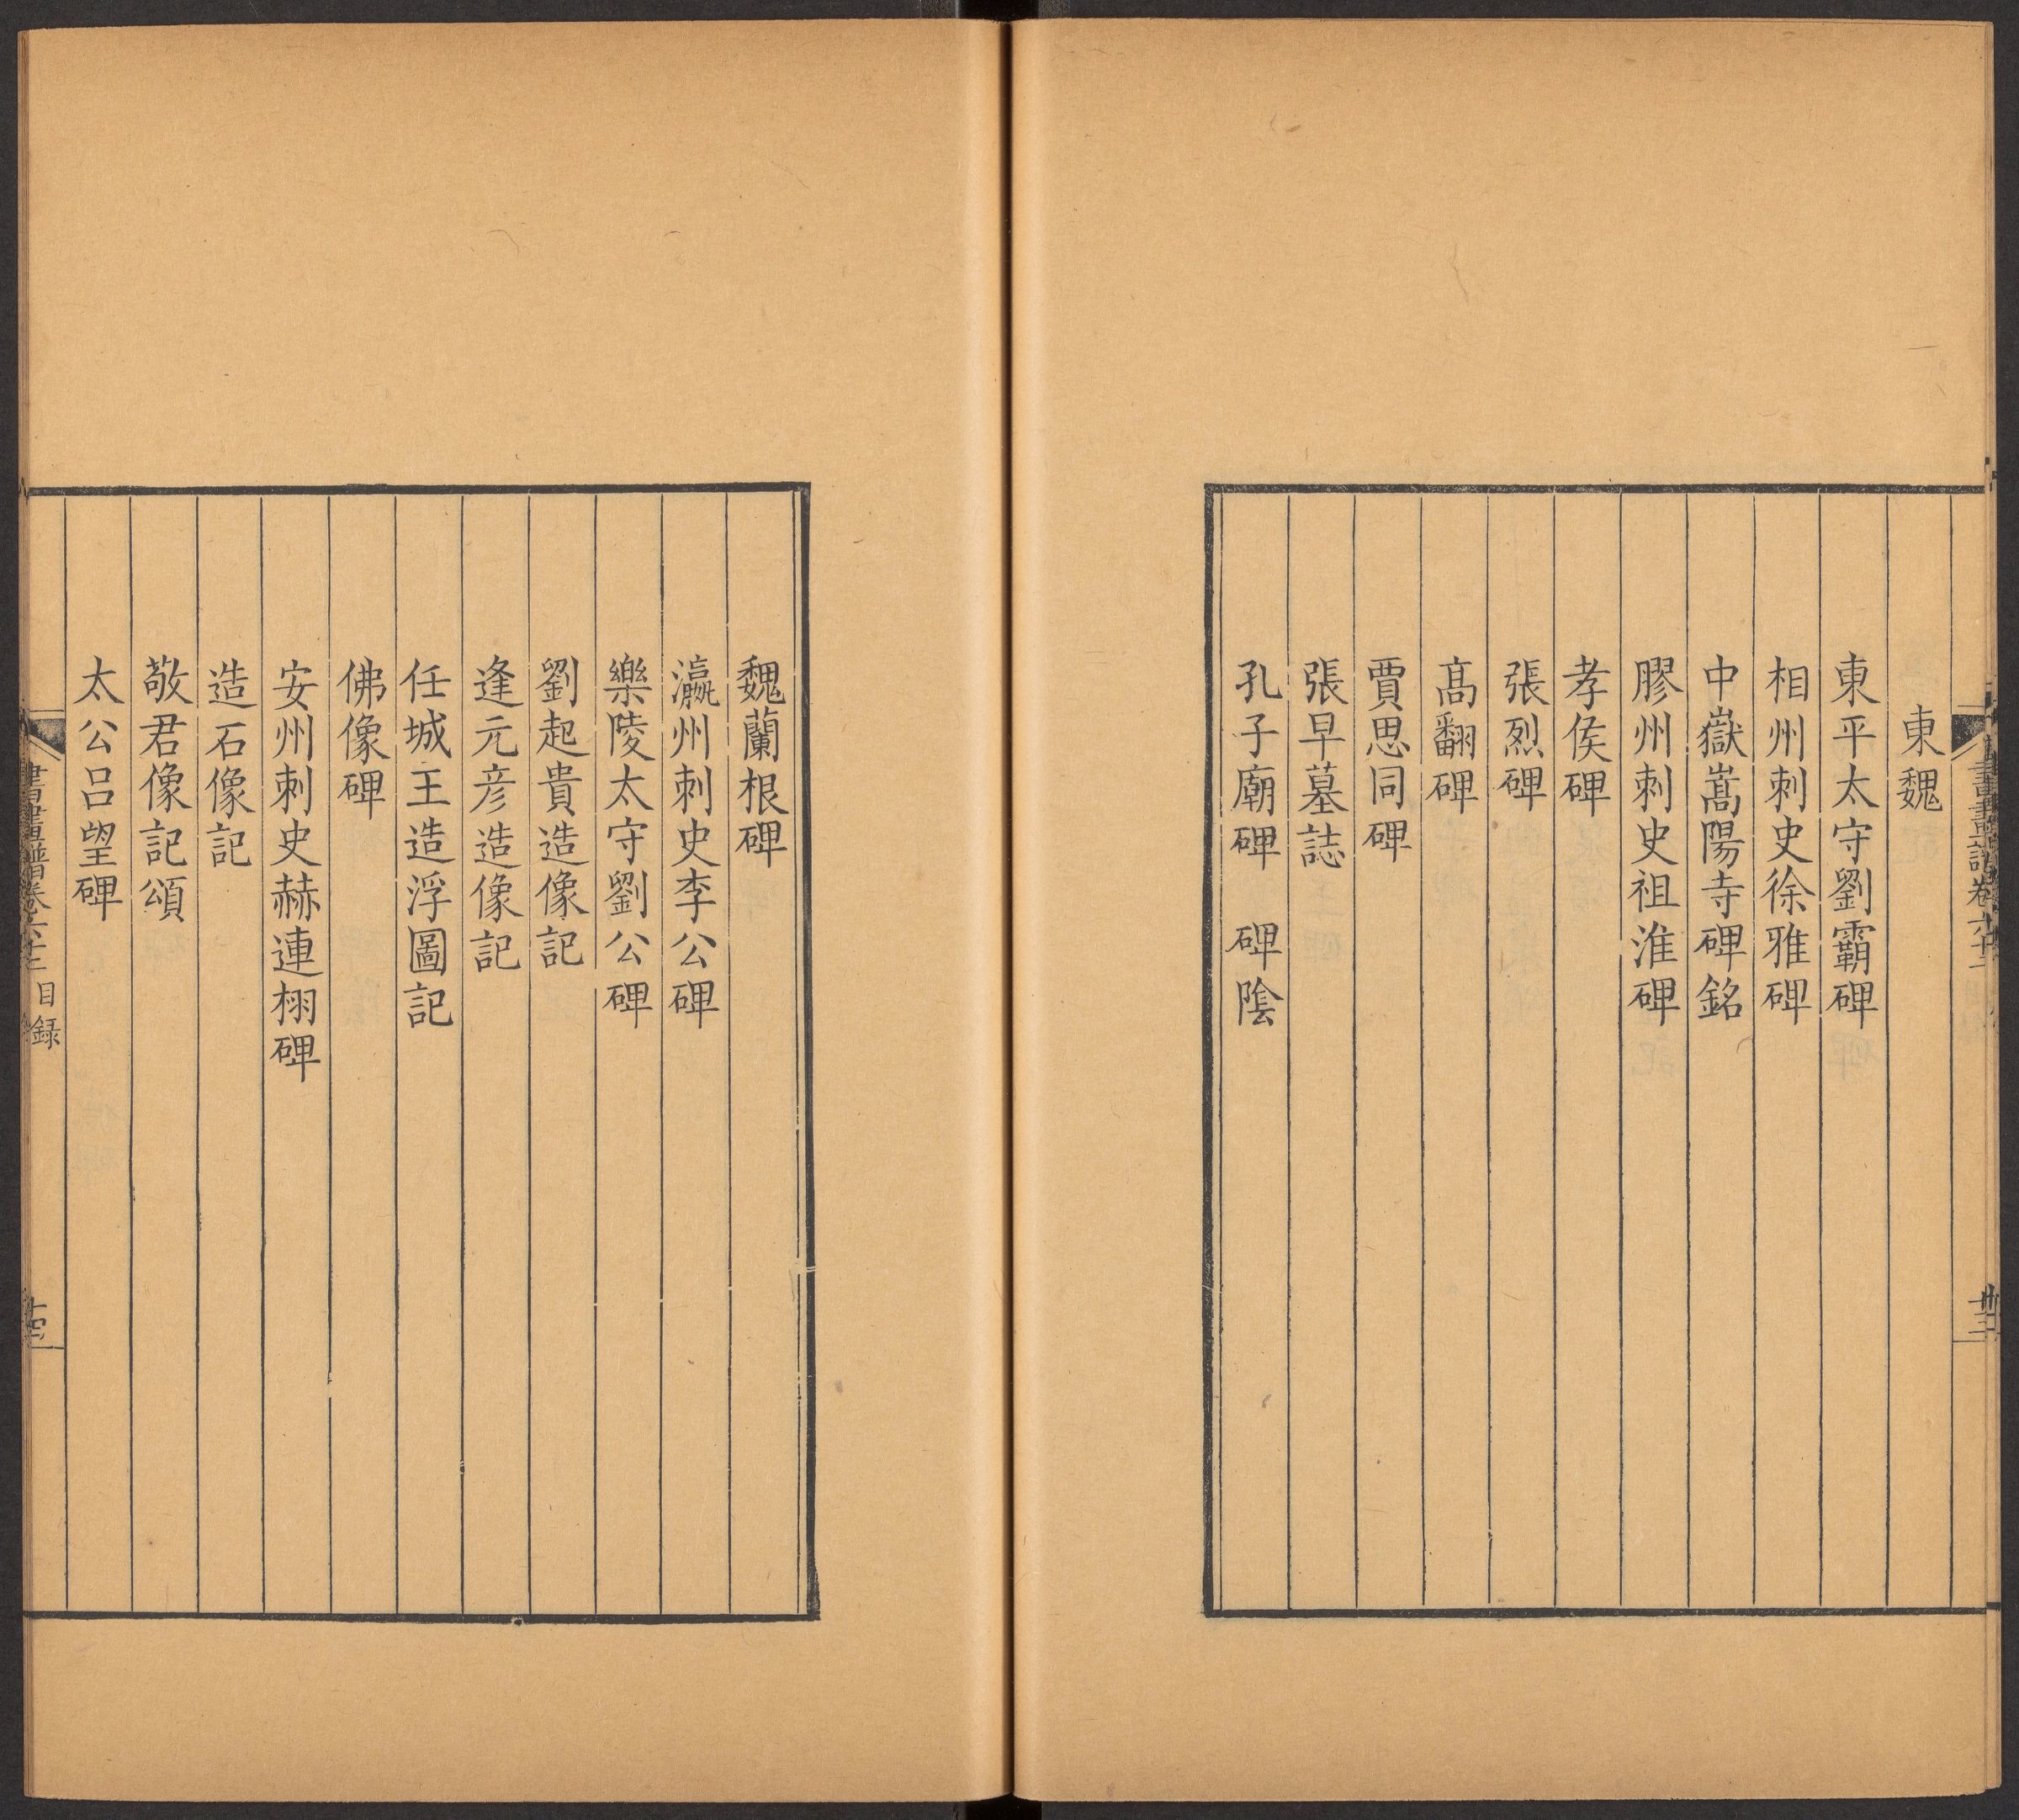 東魏
東平太守劉霸碑
相州刺史徐雅碑
中嶽嵩陽寺碑銘
膠州刺史祖淮碑
孝侯碑
張烈碑
高翻碑
賈思同碑
張早墓誌
孔子廟碑　碑陰
魏蘭根碑
瀛州刺史李公碑
樂陵太守劉公碑
劉起貴造像記
逢元彦造像記
任城王造浮圖記
佛像碑
安州刺史赫連栩碑
造石像記
敬君像記頌
太公呂望碑
目録